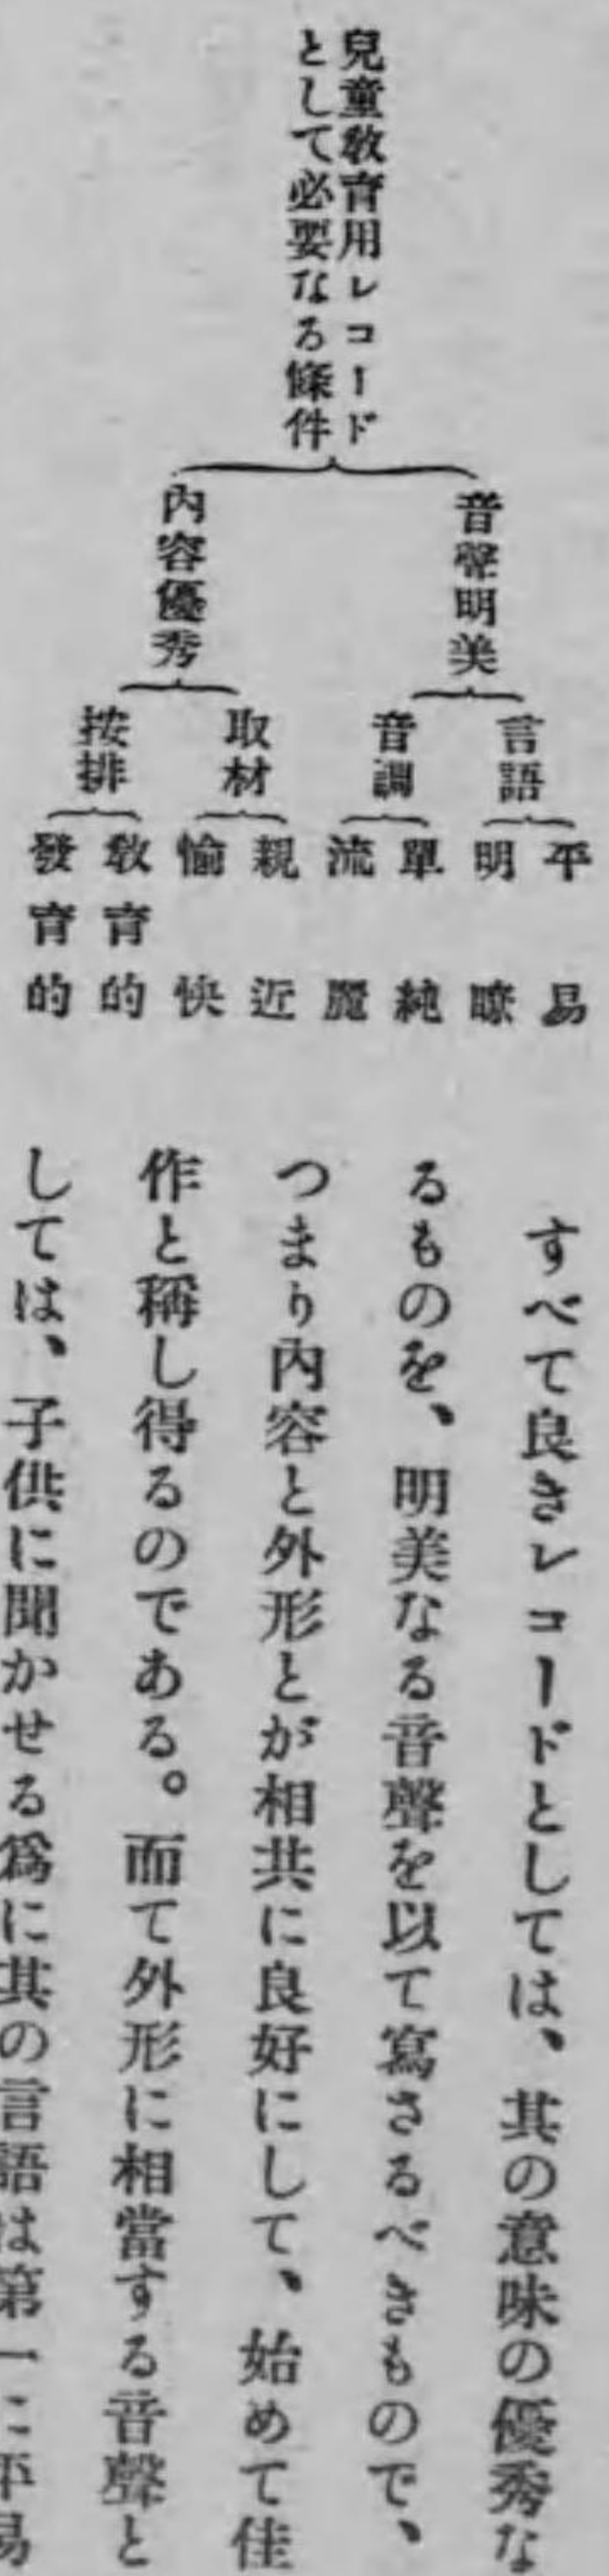 兒童敎育用レコード
として必要なる條件
音聲明美
言語
平易
明瞭
音調
單純
流麗
內容優秀
取材
親近
愉快
按排
敎育的
發育的
すべて良きレコードとしては、其の意味の優秀な
るものを、明美なる音聲を以て寫さるべきもので、
つまり內容と外形とが相共に良好にして、始めて佳
作と稱し得るのである。而て外形に相當する音聲と
しては、子供に聞かせる爲に其の言語は第一に平易